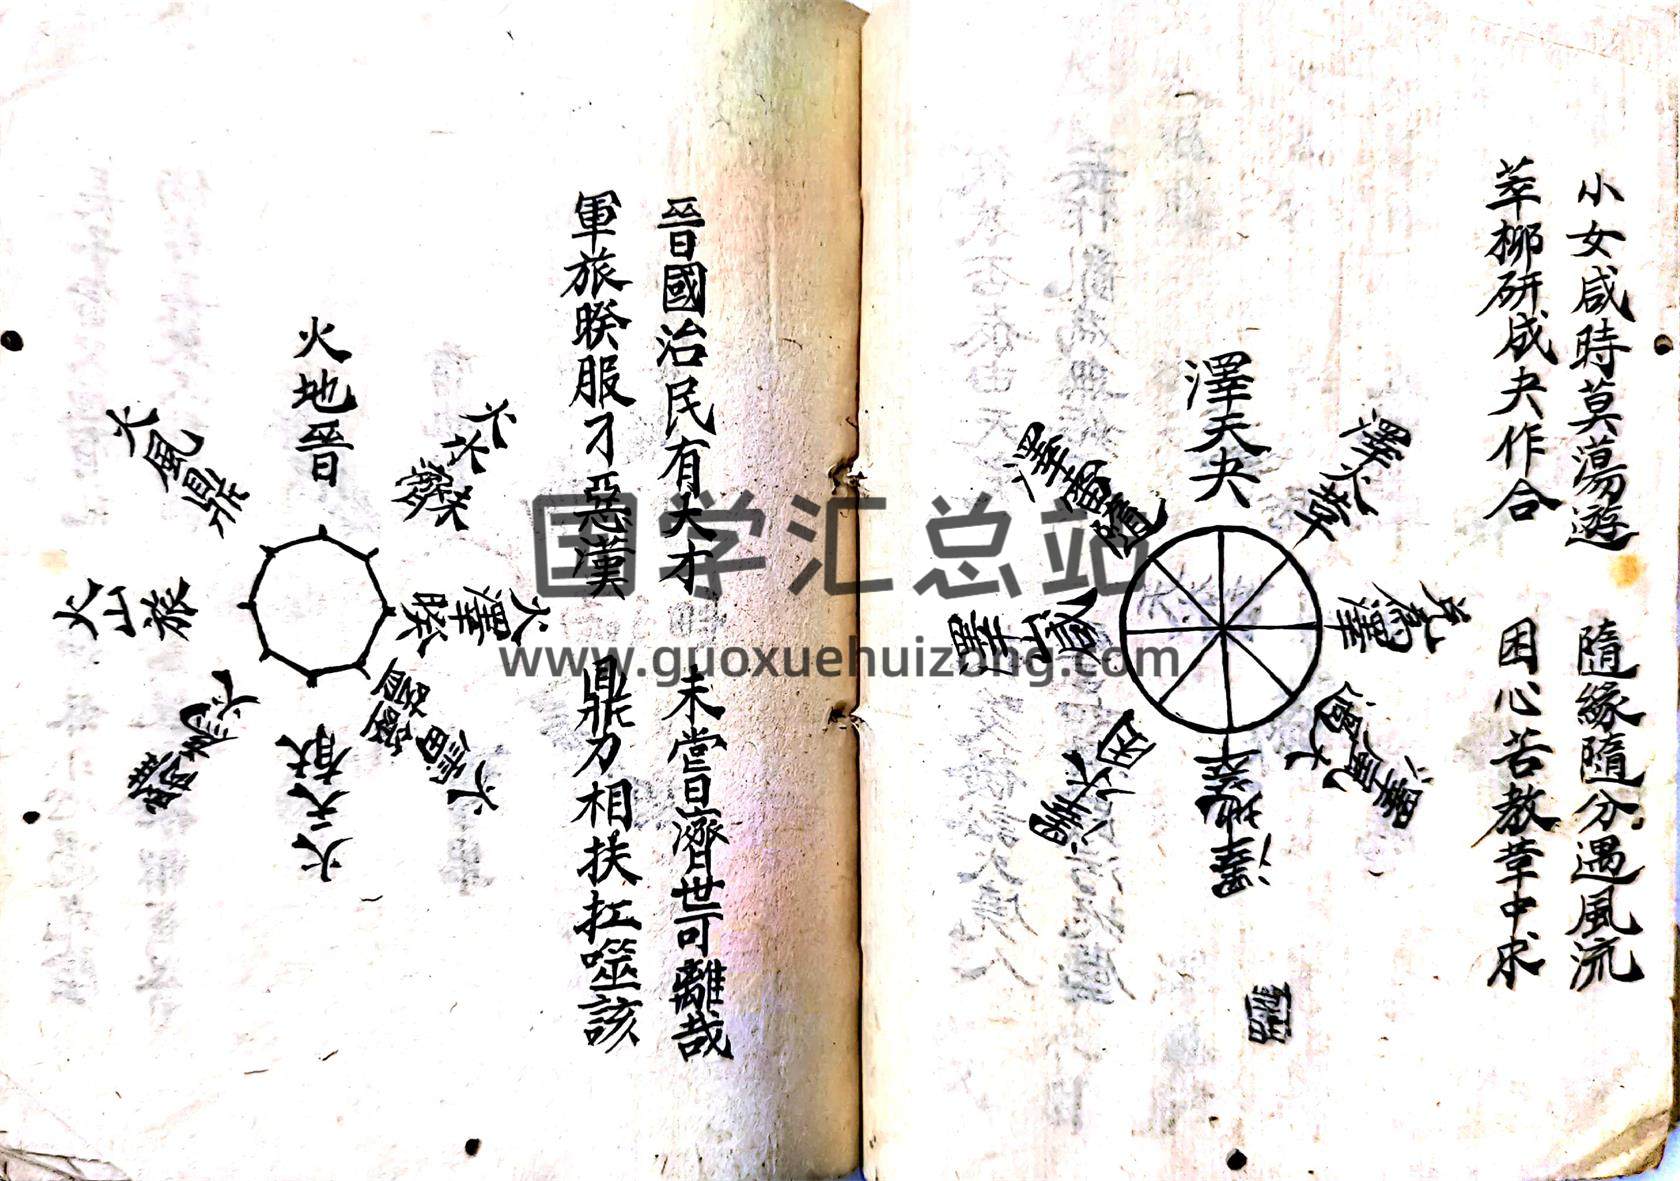 小女咸時莫蕩遊 隨緣隨分遇風流
萃柳研成夬作合 困心苦教革中求
澤天夬
澤火革
兌為澤
澤風大過
澤地萃
澤水困
澤山咸
澤雷隨
晉國治民有大才 未嘗旦濟世可離哉
軍旅睽服刁惡漢 鼎力相扶扛噬該
火地晉
火水未濟
火澤睽
火雷噬嗑
火天大有
離為火
火山旅
火風鼎
国学汇总站
www.guoxuehuizong.com